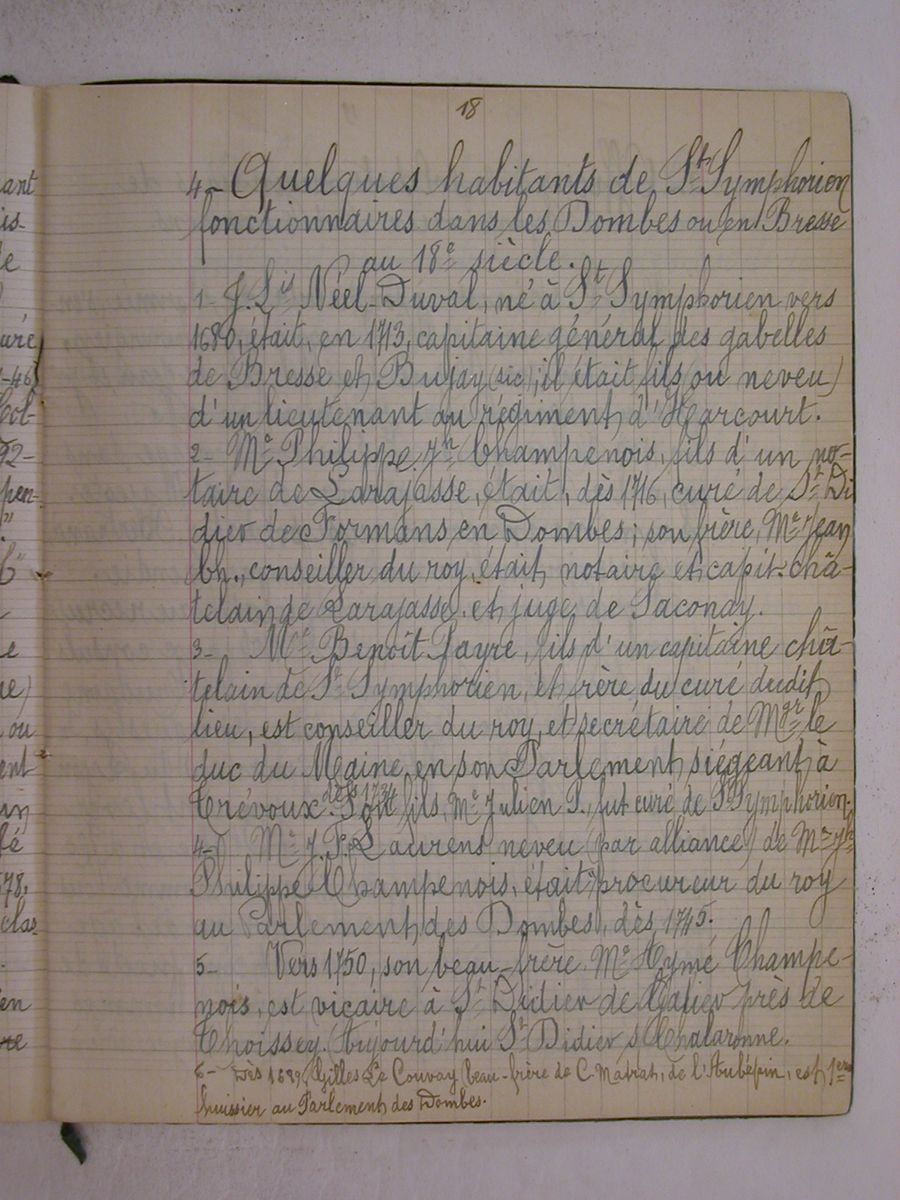 18
4- Quelques habitants de St Symphorien
fonctionnaires dans les Dombes ou en Bresse
au 18e siècle.
1- J. Lis Néel-Duval, né à St Symphorien vers
1680, était, en 1713, capitaine général des gabelles
de Bresse et Bujay (sic), il était fils (ou neveu)
d'un lieutenant au régiment d'Harcourt.
2- Me Philippe Jh Champenois, fils d'un no-
taire de Larajasse, était, dès 1716, curé de St Di
dier de Formans en Dombes; son frère, Me Jean
Bn., conseiller du roy, était notaire et capit. châ-
telain de Larajasse et juge de Saconay.
3- Me Benoît Fayre, fils d'un capitaine châ-
telain de St Symphorien, et frère du curé dudit
lieu, est conseiller du roy, et secrétaire de Mgr le
duc du Maine en son Parlement siégeant à
Trévoux dès 1734. Son fils, Me Julien F., fut curé de St Symphorien.
4-) Me J. P. Laurens neveu (par alliance) de Me Jh
Philippe Champenois, était procureur du roy
au Parlement des Dombes, dès 1745.
5- Vers 1750, son beau-frère Me Hymé Champe-
nois, est vicaire à St Didier de Valier près de
Thoissey. Aujourd'hui St Didier s Chalaronne.
6- Dès 1689, Gilles Le Couvay beau-frère de C. de l'Aubépin, est 1er
huissier au Parlement des Dombes.
ant
is-
le
uré
-46)
Col-
92-
pen-
"
b"
le
ue)
ou
ent
un
fé
578,
clas
en
re